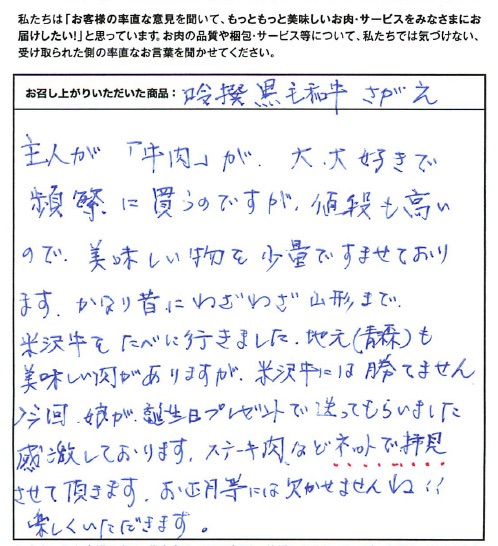 私たちは「お客様の率直な意見を聞いて、もっともっと美味しいお肉・サービスをみなさまにお
届けしたい!」と思っています。お肉の品質や梱包・サービス等について、私たちでは気づけない、
受け取られた側の率直なお言葉を聞かせてください。
お召し上がりいただいた商品：吟撰黒毛和牛 さがえ
主人が「牛肉」が、大、大好きで
頻繁に買うのですが、値段も高い
ので、美味しい物を少量ですませており
ます。かなり昔にわざわざ山形まで、
米沢牛をたべに行きました。地元(青森)も
美味しい肉がありますが、米沢牛には勝てません
今回、娘が、誕生日プレゼントで送ってもらいました
感激しております。ステーキ肉などネットで拝見
させて頂きます。お正月等には欠かせませんね!!
楽しくいただきます。